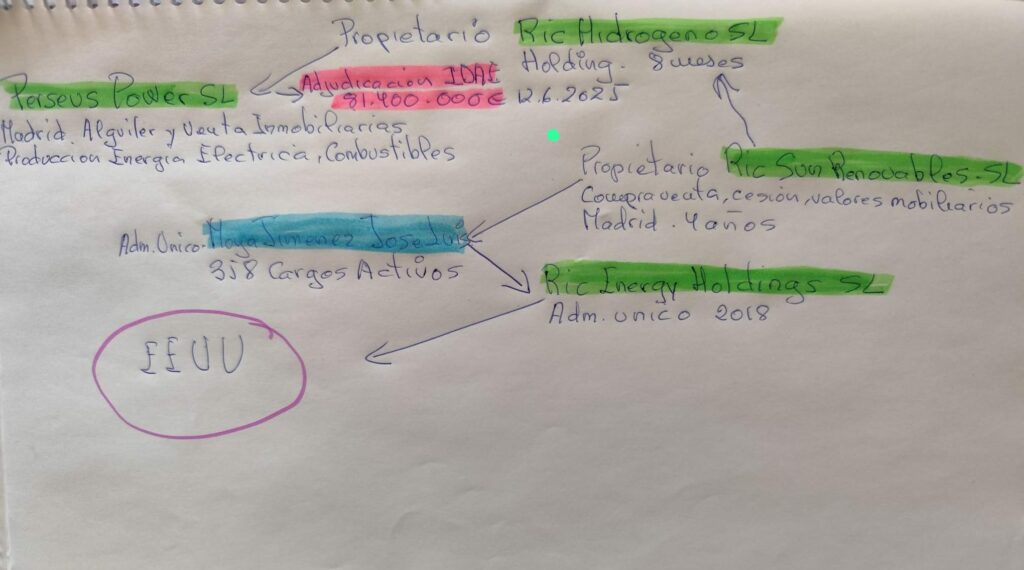 Propietario Ric Hidrogeno SL
Holding. 8 meses
Adjudicacion IDAE
81.400.000€ 12.6.2025
Perseus Power SL
Madrid. Alquiler y Venta Inmobiliarias
Produccion Energia Electrica, Combustibles
Propietario Ric Sun Renovables. SL
Compra venta, cesión, valores mobiliarios
Madrid. 4 años
Adm. Unico. Moya Jimenez Jose Luis
358 Cargos Activos
Ric Energy Holdings SL
Adm. unico 2018
EEUU